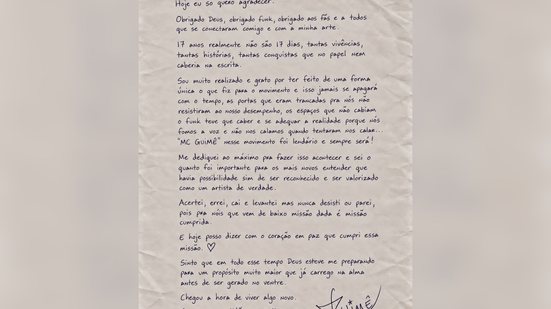 Hoje eu só quero agradecer.
Obrigado Deus, obrigado funk, obrigado aos fãs e a todos
que se conectaram comigo e com a minha arte.
17 anos realmente não são 17 dias, tantas vivências,
tantas histórias, tantas conquistas que no papel nem
caberia na escrita.
Sou muito realizado e grato por ter feito de uma forma
única o que fiz para o movimento e isso jamais se apagará
com o tempo, as portas que eram trancadas pra nós não
resistiram ao nosso desempenho, os espaços que não cabiam
o funk teve que caber e se adequar a realidade porque nós
fomos a voz e não nos calamos quando tentaram nos calar...
"MC GUIMÊ" nesse movimento foi lendário e sempre será!
Me dediquei ao máximo pra fazer isso acontecer e sei o
quanto foi importante para os mais novos entender que
havia possibilidade sim de ser reconhecido e ser valorizado
como um artista de verdade.
Acertei, errei, caí e levantei mas nunca desisti ou parei,
pois pra nóis que vem de baixo missão dada é missão
cumprida.
E hoje posso dizer com o coração em paz que cumpri essa
missão.
Sinto que em todo esse tempo Deus esteve me preparando
para um propósito muito maior que já carrego na alma
antes de ser gerado no ventre.
Chegou a hora de viver algo novo.
Guimê